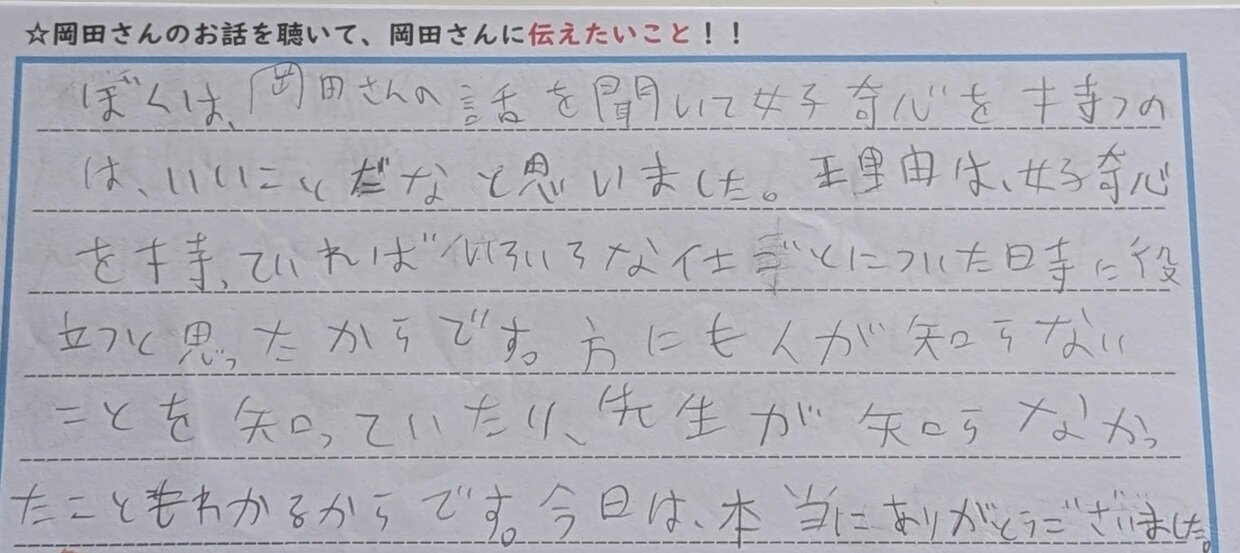 ☆岡田さんのお話を聴いて、岡田さんに伝えたいこと！！
ぼくは、岡田さんの話を聞いて好奇心を持つの
は、いいことだなと思いました。理由は、好奇心
を持っていればいろいろな仕事とについた時に役
立つと思ったからです。方にも人が知らない
ことを知っていたり、先生が知らなかっ
たこともわかるからです。今日は、本当にありがとうございました。